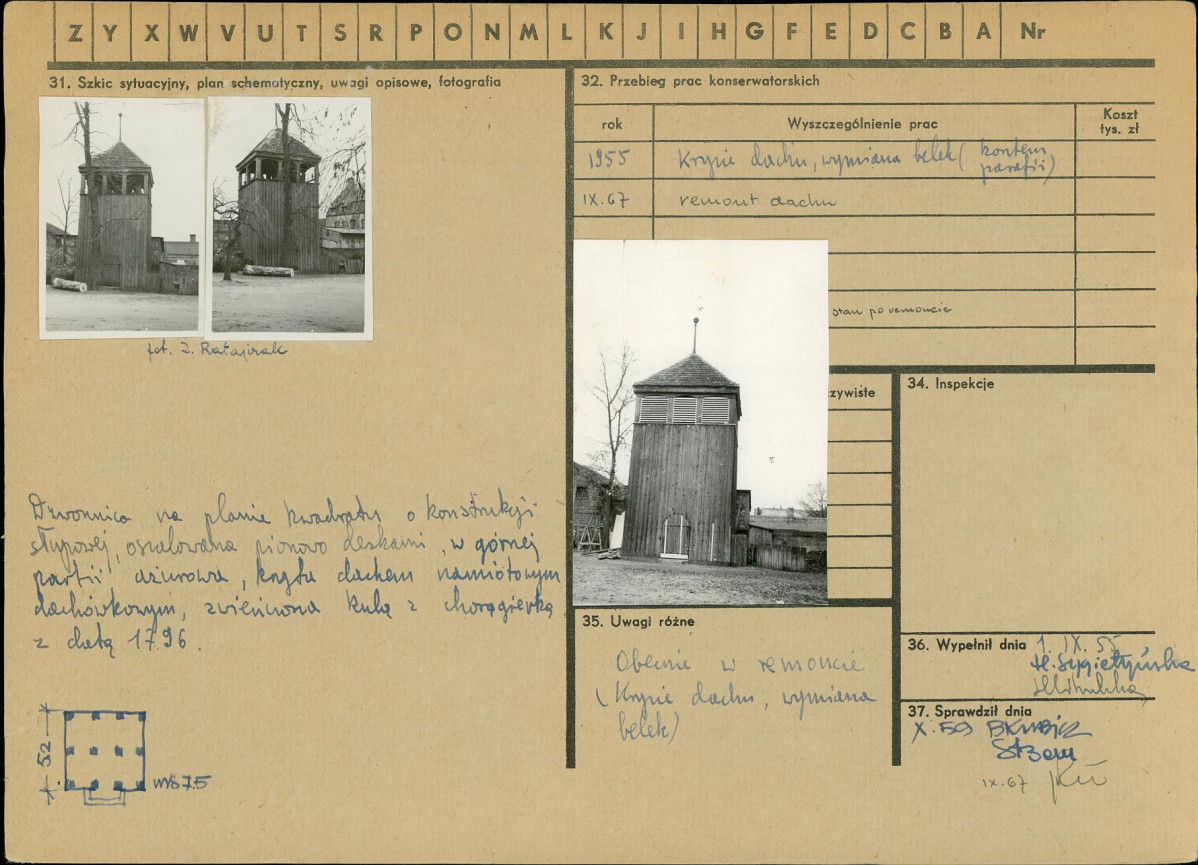 Z Y X W V U T S R P O N M L K J I H G F E D C B A Nr
31. Szkic sytuacyjny, plan schematyczny, uwagi opisowe, fotografia
fot. Z. Ratajczak
Dzwonnica na planie kwadratu o konstrukcji
słupowej, oszalowana pionowo deskami, w górnej
partii ażurowa, kryta dachem namiotowym
dachówkowym, zwieńczona kulą z chorągiewką
z datą 1796.
52
wys 7.5
32. Przebieg prac konserwatorskich
rok Wyszczególnienie prac Koszt tys. zł
1955 Krycie dachu, wymiana belek (kosztem
parafii)
IX.67 remont dachu
stan po remoncie
zywiste
34. Inspekcje
35. Uwagi różne
Obecnie w remoncie
(Krycie dachu, wymiana
belek)
36. Wypełnił dnia 1. IX. 55
H. Sygietyńska
37. Sprawdził dnia
X. 59
IX.67